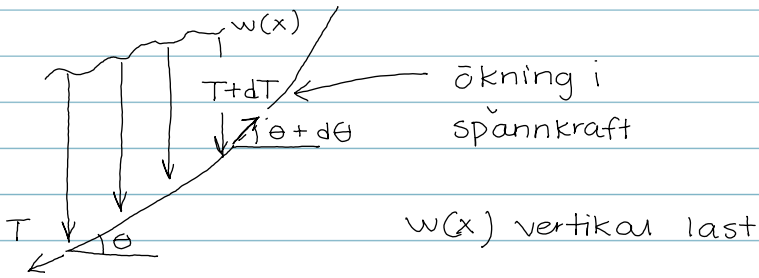 w(x)
T+dT
ökning i
θ + dθ
spännkraft
T
θ
w(x) vertikal last